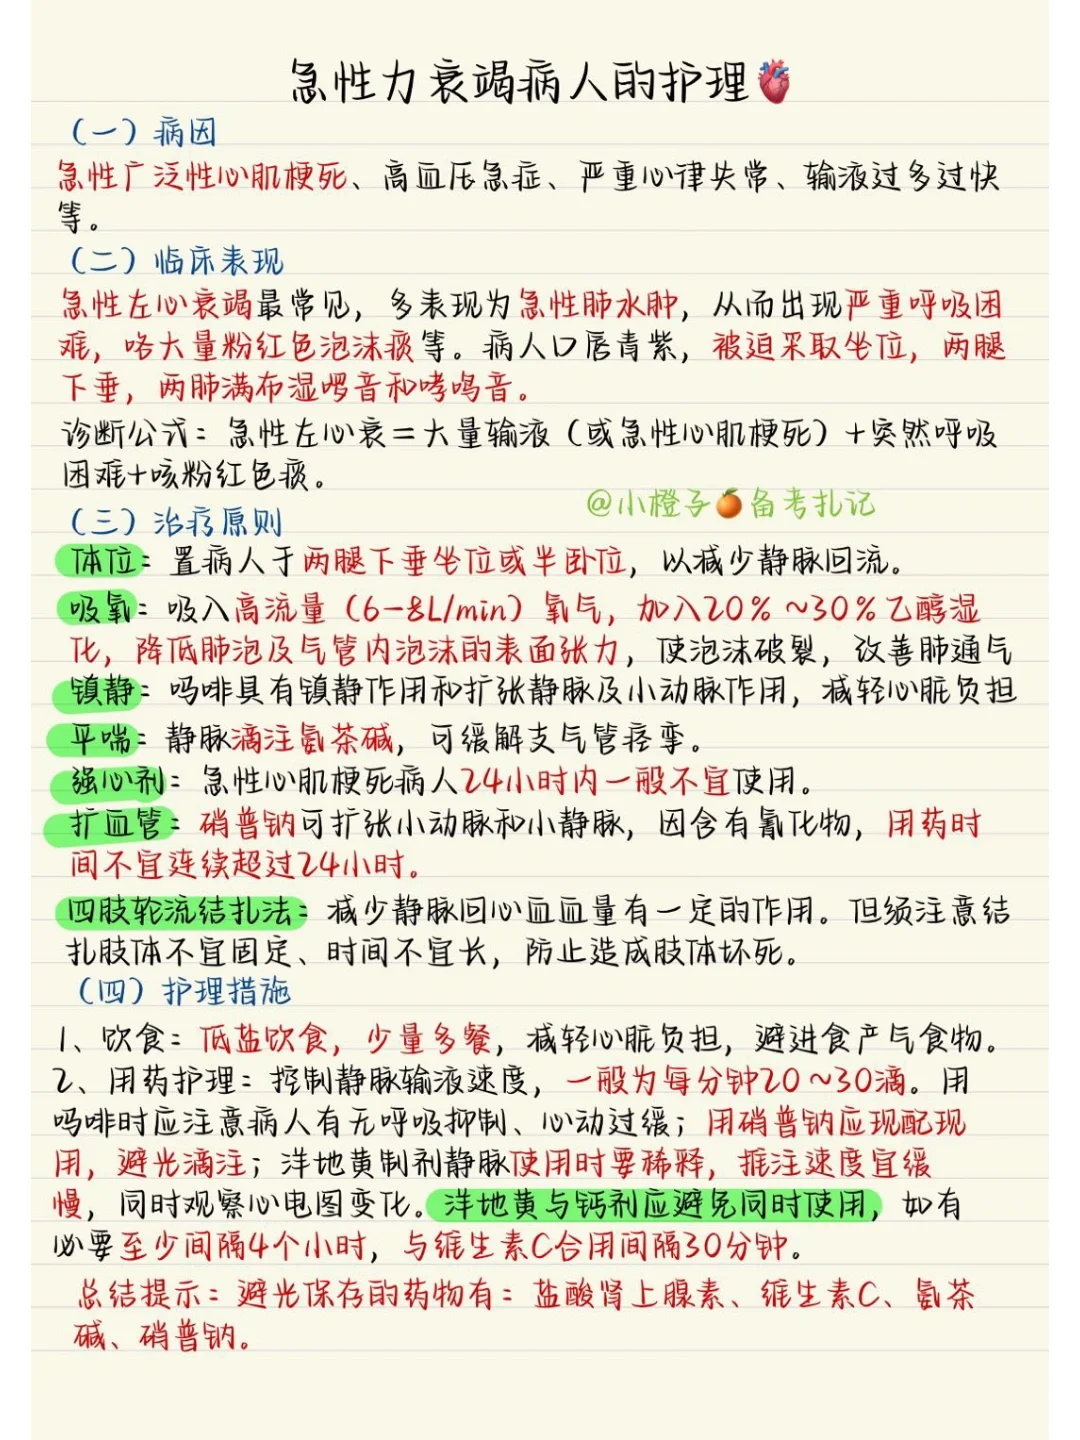 急性力衰竭病人的护理
（一）病因
急性广泛性心肌梗死、高血压急症、严重心律失常、输液过多过快
等。
（二）临床表现
急性左心衰竭最常见，多表现为急性肺水肿，从而出现严重呼吸困
难，咯大量粉红色泡沫痰等。病人口唇青紫，被迫采取坐位，两腿
下垂，两肺满布湿啰音和哮鸣音。
诊断公式：急性左心衰＝大量输液（或急性心肌梗死）＋突然呼吸
困难＋咳粉红色痰。
@小橙子🍊备考扎记
（三）治疗原则
体位：置病人于两腿下垂坐位或半卧位，以减少静脉回流。
吸氧：吸入高流量（6－8L/min）氧气，加入20％～30％乙醇湿
化，降低肺泡及气管内泡沫的表面张力，使泡沫破裂，改善肺通气
镇静：吗啡具有镇静作用和扩张静脉及小动脉作用，减轻心脏负担
平喘：静脉滴注氨茶碱，可缓解支气管痉挛。
强心剂：急性心肌梗死病人24小时内一般不宜使用。
扩血管：硝普钠可扩张小动脉和小静脉，因含有氰化物，用药时
间不宜连续超过24小时。
四肢轮流结扎法：减少静脉回心血血量有一定的作用。但须注意结
扎肢体不宜固定、时间不宜长，防止造成肢体坏死。
（四）护理措施
1、饮食：低盐饮食，少量多餐，减轻心脏负担，避进食产气食物。
2、用药护理：控制静脉输液速度，一般为每分钟20～30滴。用
吗啡时应注意病人有无呼吸抑制、心动过缓；用硝普钠应现配现
用，避光滴注；洋地黄制剂静脉使用时要稀释，推注速度宜缓
慢，同时观察心电图变化。洋地黄与钙剂应避免同时使用，如有
必要至少间隔4个小时，与维生素C合用间隔30分钟。
总结提示：避光保存的药物有：盐酸肾上腺素、维生素C、氨茶
碱、硝普钠。